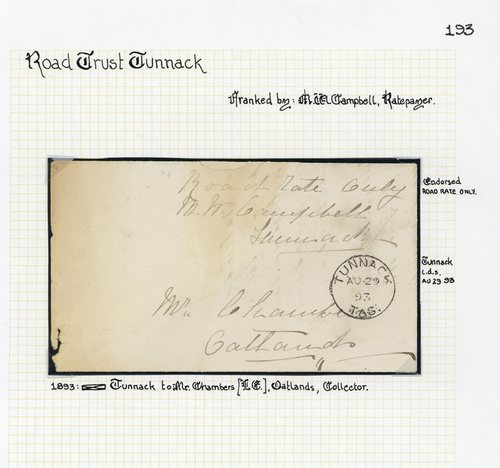 193
Road Trust Tunnack
Franked by: M.W. Campbell, Ratepayer.
Road rate Only
M. W. Campbell
Tunnack
Endorsed
ROAD RATE ONLY.
TUNNACK
AU 29
93
TAS.
Tunnack
c.d.s.
AU 29 93
Mr Chambers
Oatlands
1893: Tunnack to Mr. Chambers [L.E.], Oatlands, Collector.